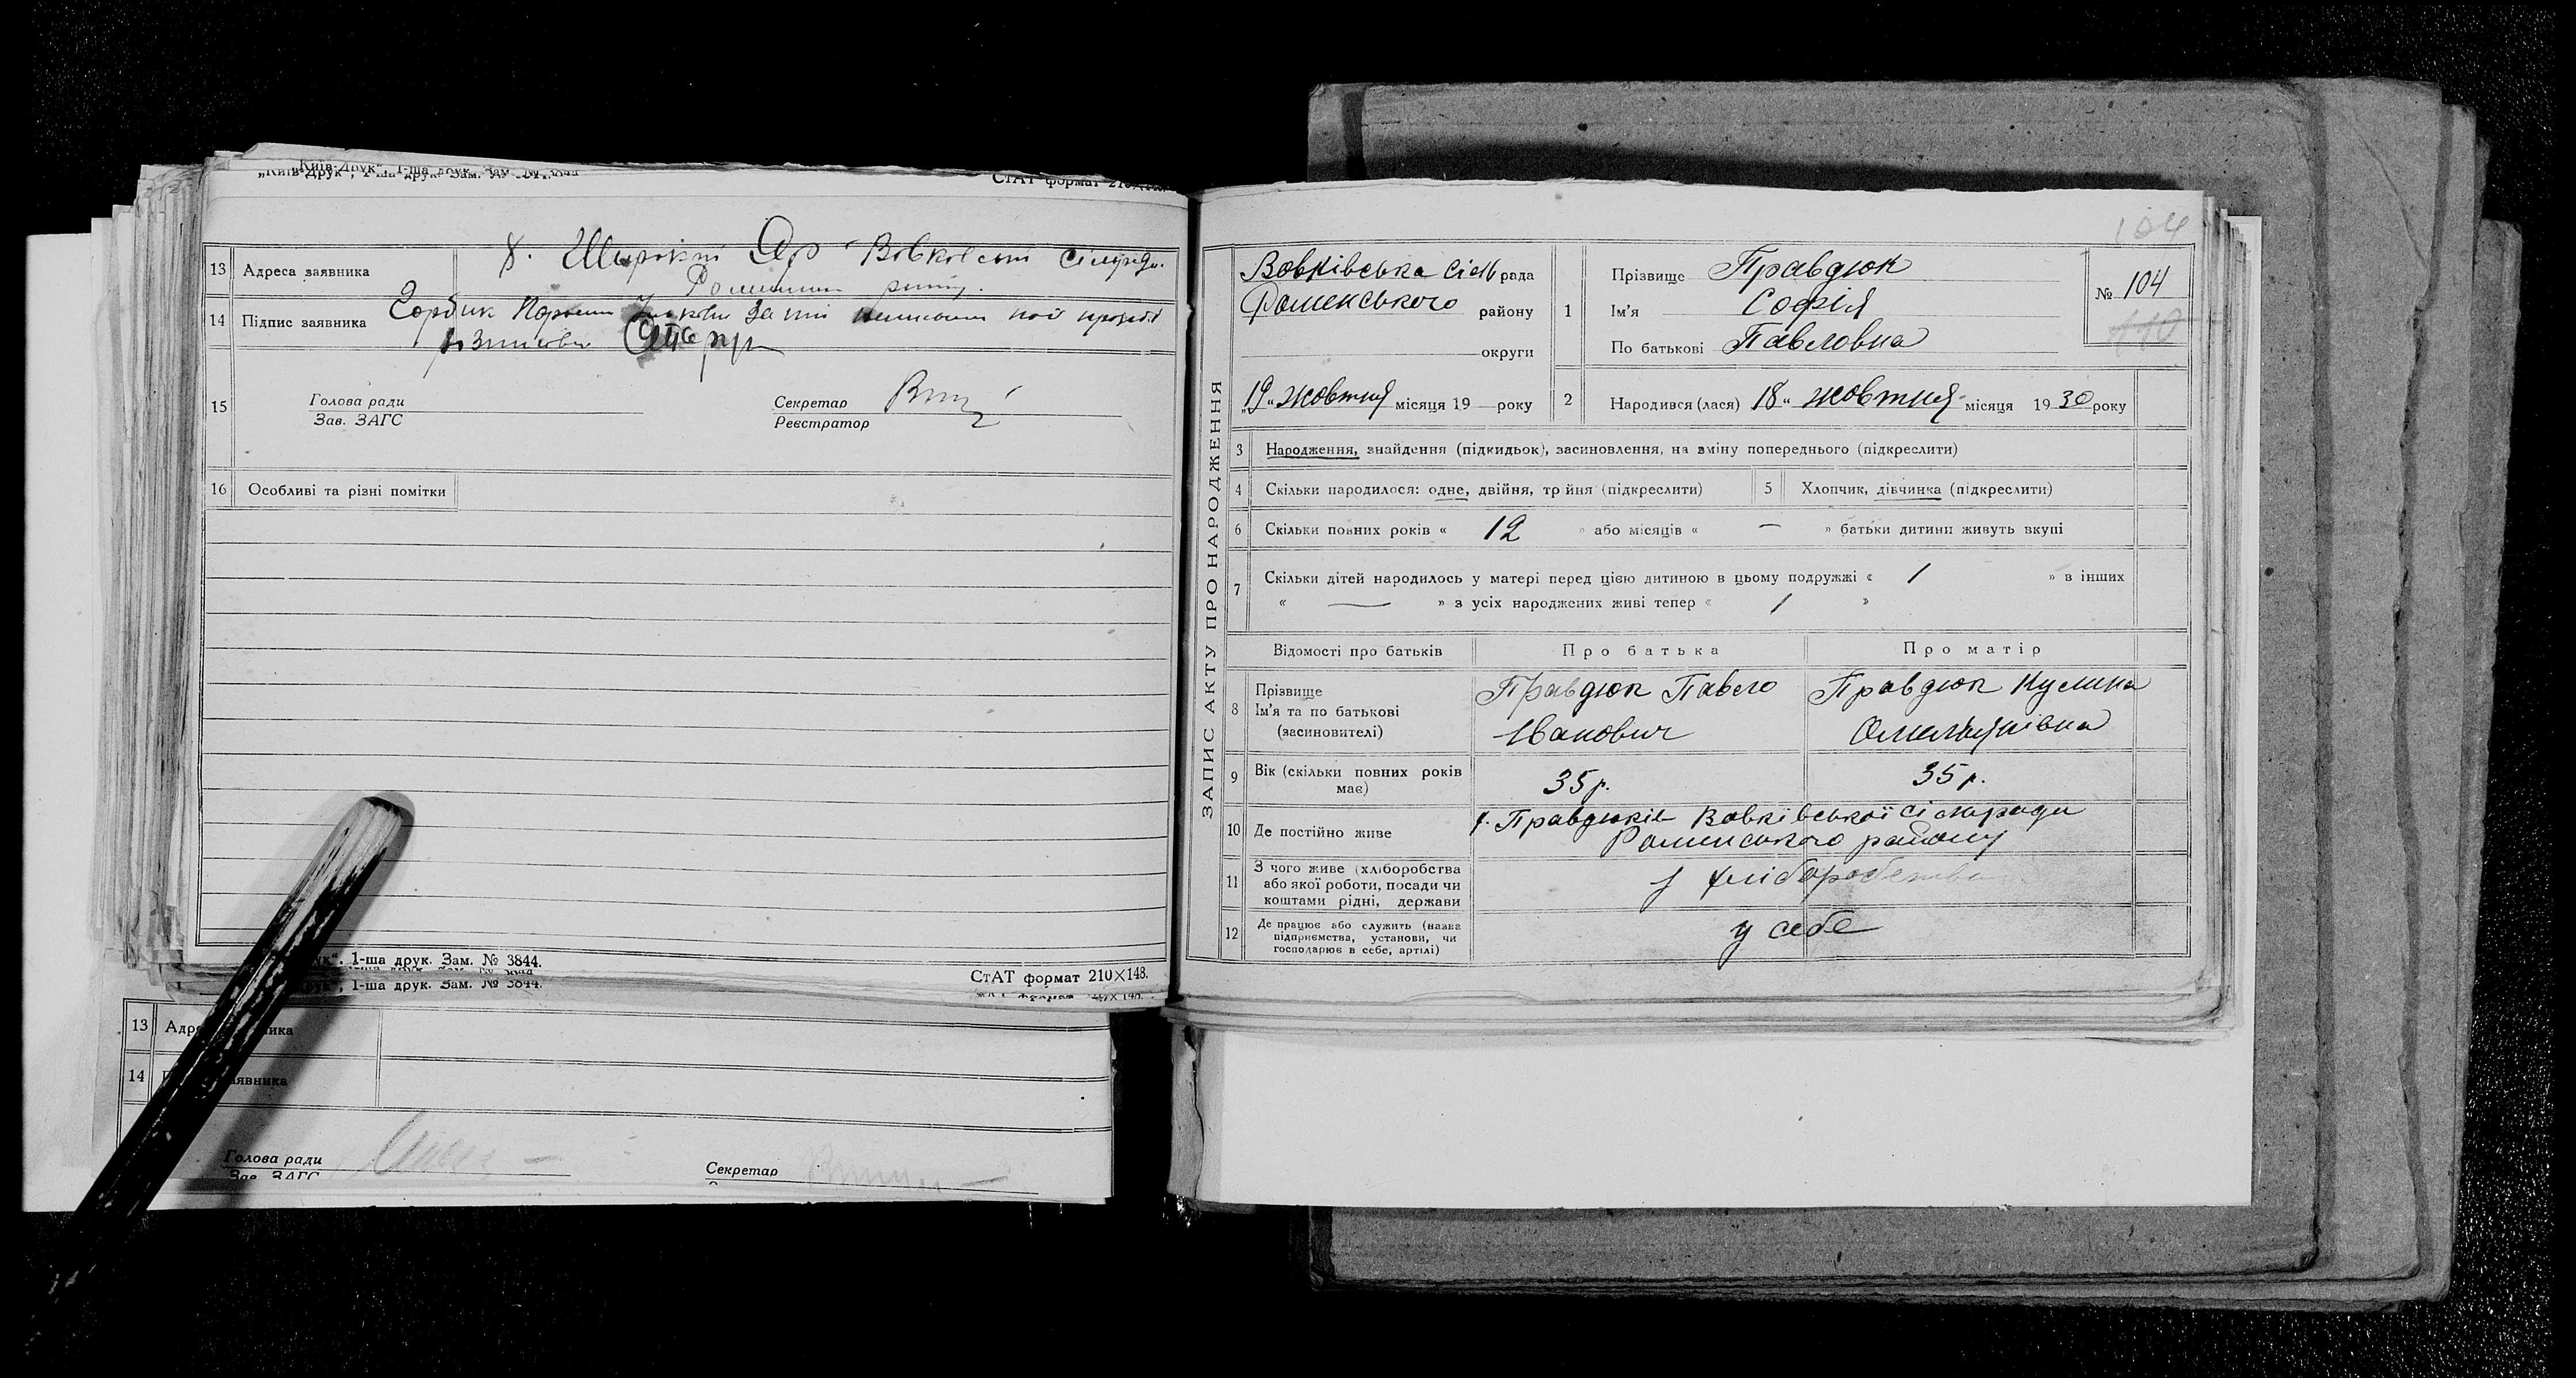 „Київ-Друк", 1-ша друк. Зам. № 3844
СтАТ формат 210×148.
13 Адреса заявника х. Широкий Яр Вовківської сільради
Роменськ району.
14 Підпис заявника Горбик
15 Голова ради
Зав. ЗАГС
Секретар
Реєстратор
16 Особливі та різні помітки
1-ша друк. Зам. № 3844.
СтАТ формат 210×148.
1-ша друк. Зам. № 3844.
13
14
Голова ради
Зав. ЗАГС
Секретар
104
ЗАПИС АКТУ ПРО НАРОДЖЕННЯ
Вовківська сільрада
Роменського району
округи
„19" жовтня місяця 19 — року
1 Прізвище Правдюк
Ім'я Софія
По батькові Павловна
№ 104
110
2 Народився (лася) 18" жовтня місяця 1930 року
3 Народження, знайдення (підкидьок), засиновлення, на зміну попереднього (підкреслити)
4 Скільки народилося: одне, двійня, трійня (підкреслити) 5 Хлопчик, дівчинка (підкреслити)
6 Скільки повних років « 12 » або місяців « — » батьки дитини живуть вкупі
7 Скільки дітей народилось у матері перед цією дитиною в цьому подружжі « 1 » в інших
« — » з усіх народжених живі тепер « 1 »
Відомості про батьків Про батька Про матір
8 Прізвище
Ім'я та по батькові
(засиновителі)
Правдюк Павло
Іванович
Правдюк Кулина
Омелянівна
9 Вік (скільки повних років має) 35 р. 35 р.
10 Де постійно живе х. Правдюків Вовківської сільради
Роменського району
11 З чого живе (хліборобства
або якої роботи, посади чи
коштами рідні, держави
з хліборобства
12 Де працює або служить (назва
підприємства, установи, чи
господарює в себе, артілі)
у себе